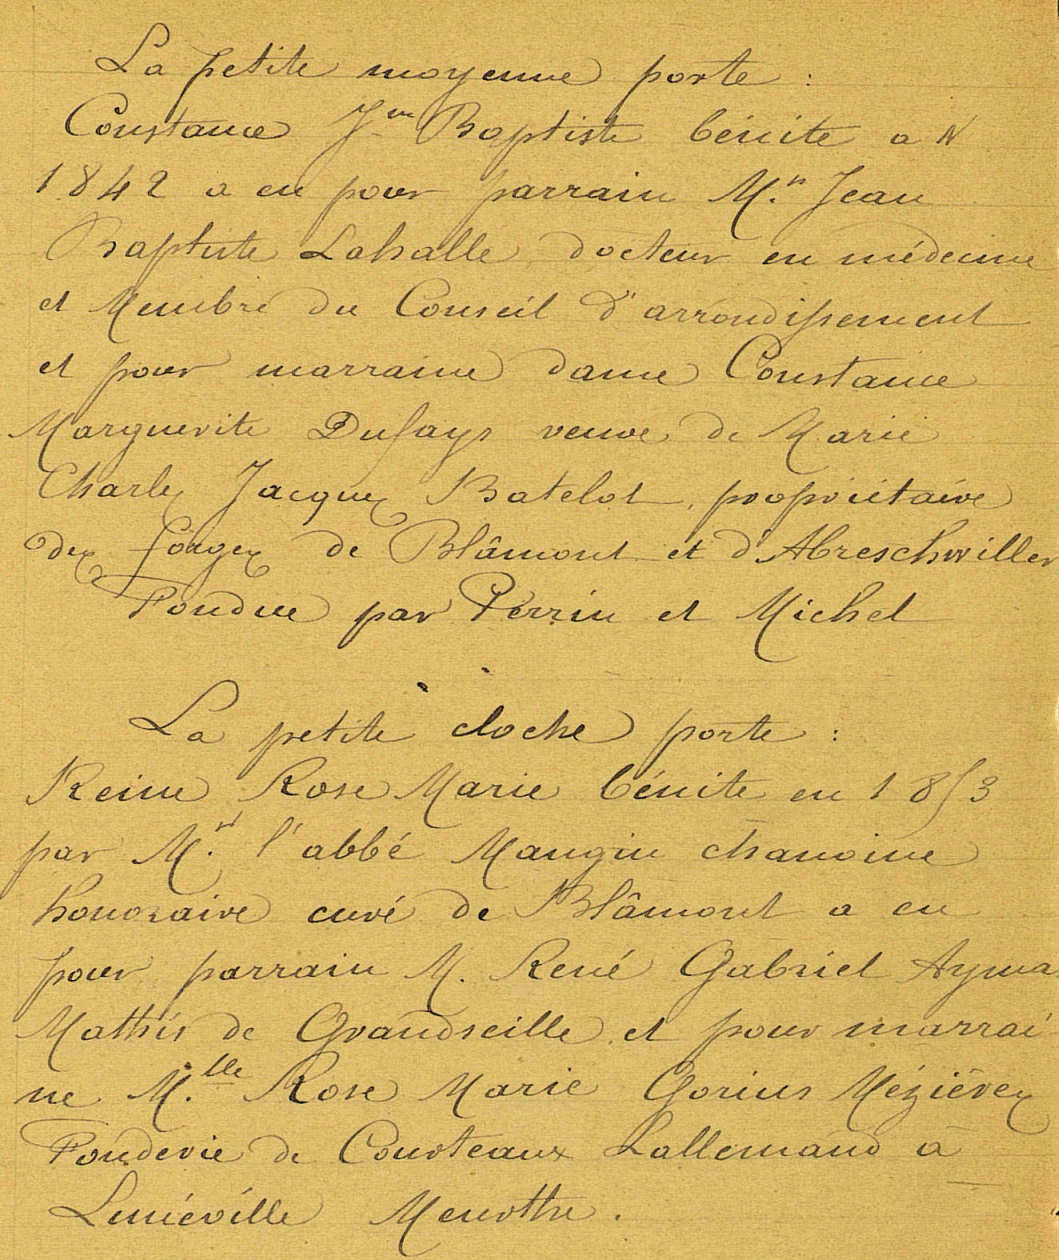 La petite moyenne porte :
Constance J^n Baptiste bénite a N
1842 a eu pour parrain M.^r Jean
Baptiste Lahalle docteur en médecine
et Membre du Conseil d'arrondissement
et pour marraine dame Constance
Marguerite Dufays veuve de Marie
Charles Jacques Batelot, propriétaire
des forges de Blâmont et d'Abreschwiller
Fondue par Perrin et Michel
La petite cloche porte :
Reine Rose Marie bénite en 1853
par M.^r l'abbé Mangin chanoine
honoraire curé de Blâmont a eu
pour parrain M. René Gabriel Ayma
Mathis de Grandseille et pour marrai
ne M.^lle Rose Marie Gorius Mézières
Fonderie de Courteaux Lallemand à
Lunéville